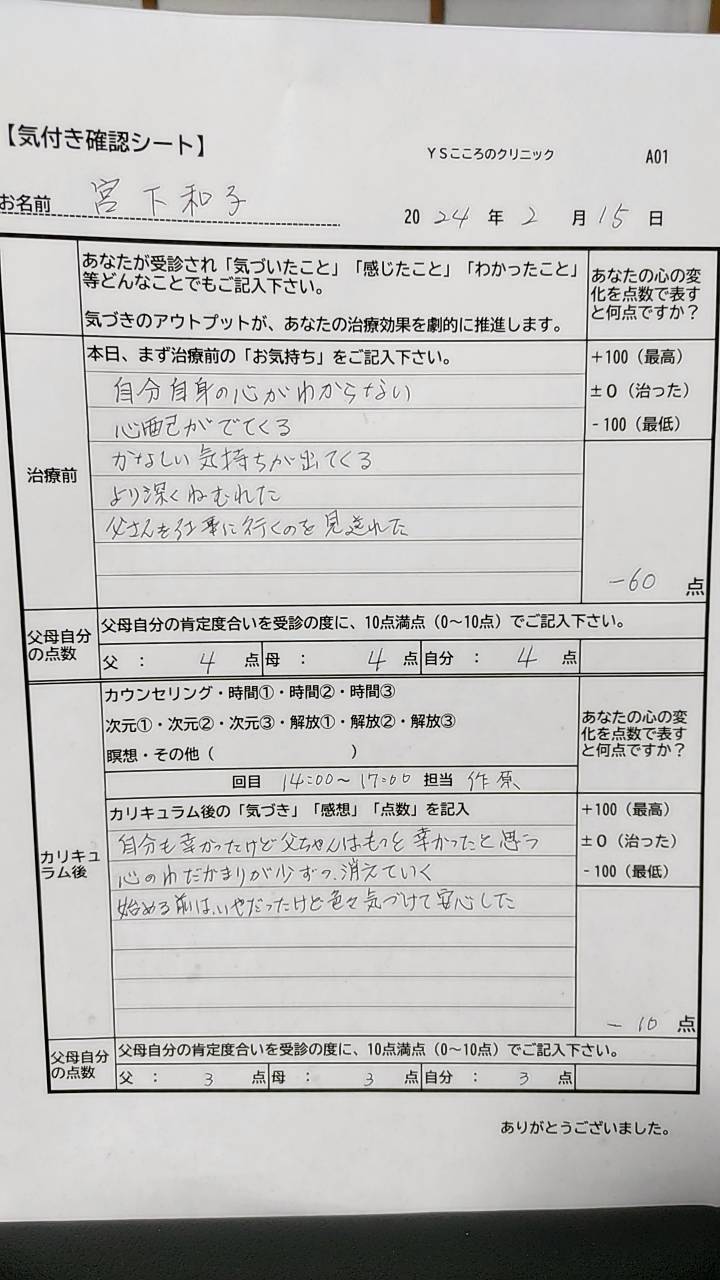 【気付き確認シート】
YSこころのクリニック A01
お名前 宮下和子 2024年2月15日
あなたが受診され「気づいたこと」「感じたこと」「わかったこと」
等どんなことでもご記入下さい。
気づきのアウトプットが、あなたの治療効果を劇的に推進します。
あなたの心の変
化を点数で表す
と何点ですか？
治療前
本日、まず治療前の「お気持ち」をご記入下さい。
自分自身の心がわからない
心配がでてくる
かなしい気持ちが出てくる
より深くねむれた
父さんを仕事に行くのを見送れた
+100（最高）
±0（治った）
-100（最低）
-60 点
父母自分
の点数
父母自分の肯定度合いを受診の度に、10点満点（0～10点）でご記入下さい。
父 ： 4 点 母 ： 4 点 自分 ： 4 点
カリキュ
ラム後
カウンセリング・時間①・時間②・時間③
次元①・次元②・次元③・解放①・解放②・解放③
瞑想・その他（ ）
あなたの心の変
化を点数で表す
と何点ですか？
回目 14:00～17:00 担当 作原
カリキュラム後の「気づき」「感想」「点数」を記入
自分も幸かったけど父ちゃんはもっと幸かったと思う
心のわだかまりが少ずつ、消えていく
始める前は、いやだったけど色々気づけて安心した
+100（最高）
±0（治った）
-100（最低）
-10 点
父母自分
の点数
父母自分の肯定度合いを受診の度に、10点満点（0～10点）でご記入下さい。
父 ： 3 点 母 ： 3 点 自分 ： 3 点
ありがとうございました。